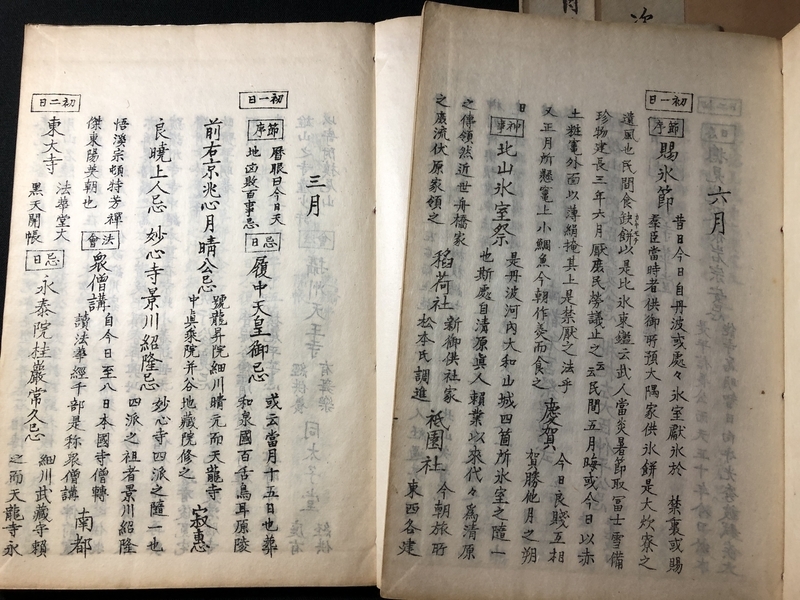 六月
初一日
節序
賜氷節
昔日今日自丹波或處々氷室獻氷於 禁裏或賜
羣臣當時者供御所預大隅家供氷餅是大炊寮之
遺風也民間食餅以是比氷東鑑云武人當炎暑節取冨士雪備
珍物建長三年六月厭庶民勞議止之 民間五月晦或今日以赤
土粧竈外面以薄絹掩其上是禁厭之法乎
又正月所懸竈上小鯛魚今朝作羹而食之
慶賀
今日良賤互相
賀勝他月之朔
日
神事
北山氷室祭
是丹波河內大和山城四箇所氷室之隨一
也斯處自清原眞人賴業以來代々為清原
之傳領然近世舟橋家
之庶流伏原家領之
稻荷社
新御供社家
松本氏調進
祇園社
今朝旅所
東西各建
三月
初一日
節序
曆眼曰今日天
地凶敗百事忌
忌日
履中天皇御忌
或云當月十五日也葬
和泉國百舌鳥耳原陵
前右京兆心月晴公忌
號龍昇院細川晴元而天龍寺
中眞乘院并谷地藏院修之
寂惠
良曉上人忌
妙心寺景川紹隆忌
妙心寺四派之隨一也
四派之祖者景川紹隆
悟溪宗頓特芳禪
傑東陽英朝也
法會
衆僧講
自今日至八日本國寺僧轉
讀法華經千部是称衆僧講
南都
初二日
東大寺
法華堂大
黒天開帳
忌日
永泰院桂巖常久忌
細川武藏守賴
之而天龍寺永